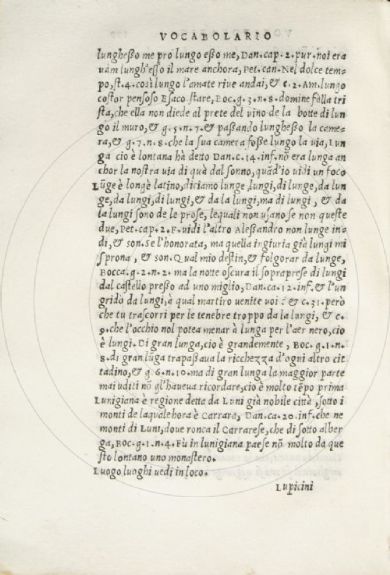 VOCABOLARIO
lungheßo me pro lungo eßo me, Dan. cap. 2. pur noi era
vam lungh'eßo il mare anchora, Pet. can. Nel dolce tem-
po, st. 4. così lungo l'amate rive andai, & t. 2. Am. lungo
costor pensoso Esaco stare, Boc. g. 3. n. 8. domine falla tri
sta, che ella non diede al prete del vino de la botte di lun
go il muro, & g. 5. n. 7. & paßando lungheßo la came-
ra, & g. 7. n. 8. che la sua camera foße lungo la via, Lun
ga cio è lontana hà detto Dan. c. 14. inf. nō era lunga an
chor la nostra via di quà dal sonno, quād'io vidi un foco
Lūge è longè latino, diciamo lunge, lungi, di lunge, da lun
ge, da lungi, di lungi, & da la lungi, ma di lungi, & da
la lungi sono de le prose, lequali non usano se non queste
due, Pet. cap. 2. F. vidi l'altro Alessandro non lunge in-
di, & son. Se l'honorata, ma quella ingiuria già lungi mi
sprona, & son. Qual mio destin, & folgorar da lunge,
Bocca. g. 2. n. 2. ma la notte oscura il sopraprese di lungi
dal castello preßo ad uno miglio, Dan. ca. 12. inf. & l'un
gridò da lungi, à qual martiro uenite voi: & c. 31. però
che tu trascorri per le tenebre troppo da la lungi, & c.
9. che l'occhio nol potea menar à lunga per l'aer nero, cio
è lungi. Di gran lunga, cio è grandemente, Boc. g. 1. n.
8. di gran lūga trapaßaua la ricchezza d'ogni altro cit
tadino, & g. 6. n. 10. ma di gran lunga la maggior parte
mai uditi nō gl'haueua ricordare, cio è molto tēpo prima
Lunigiana è regione detta da Luni già nobile città, sotto i
monti de laqual'hora è Carrara, Dan. ca. 20. inf. che ne
monti di Luni, doue ronca il Carrarese, che di sotto alber
ga, Boc. g. 1. n. 4. Fù in lunigiana paese nō molto da que
sto lontano uno monastero.
Luogo luoghi uedi in loco.
Lupicini